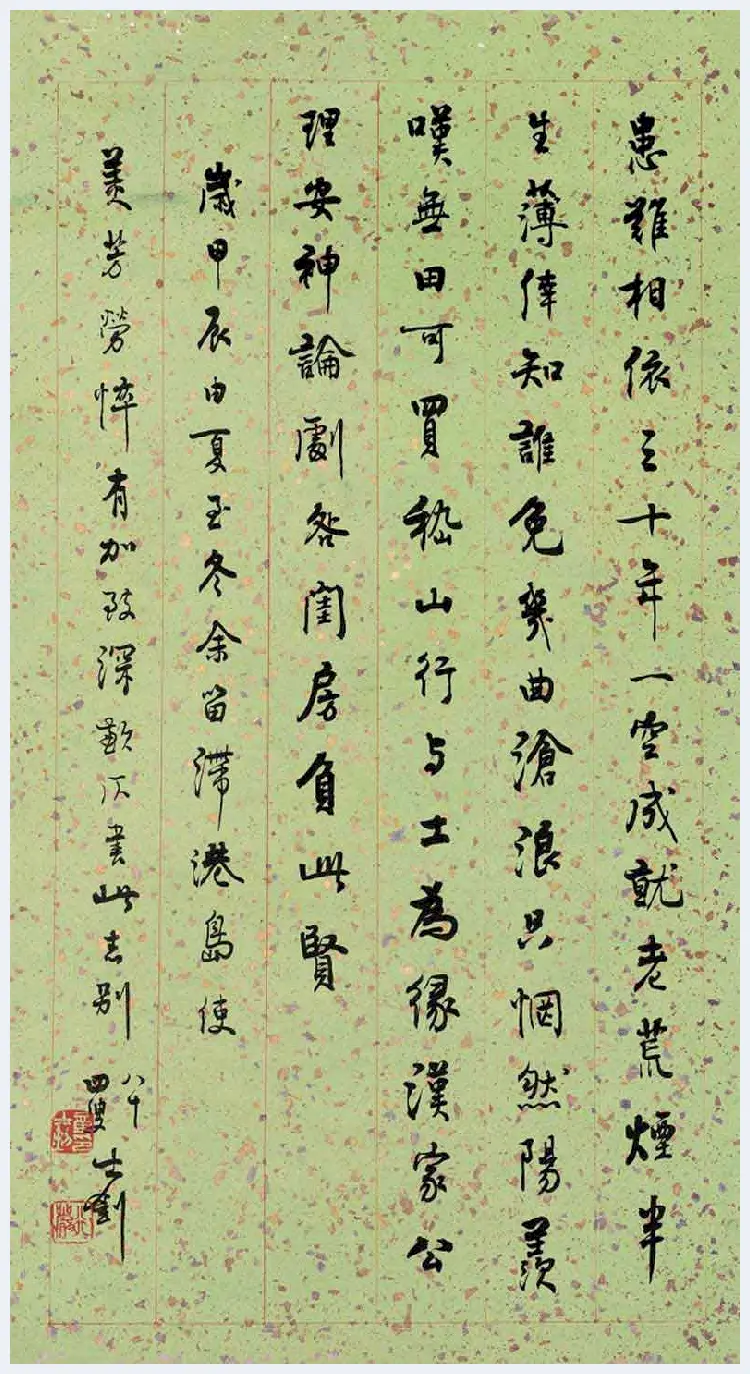 患難相依三十年一空成就老荒煙半
生薄倖知誰免幾曲滄浪只惘然陽羨
嘆無田可買嵇山行与士為緣漢家公
理安神論劇答閨房負此賢
歲甲辰由夏至冬余留滯港島使
美芳勞悴有加致深歉仄書此志别
八十四叟
士釗